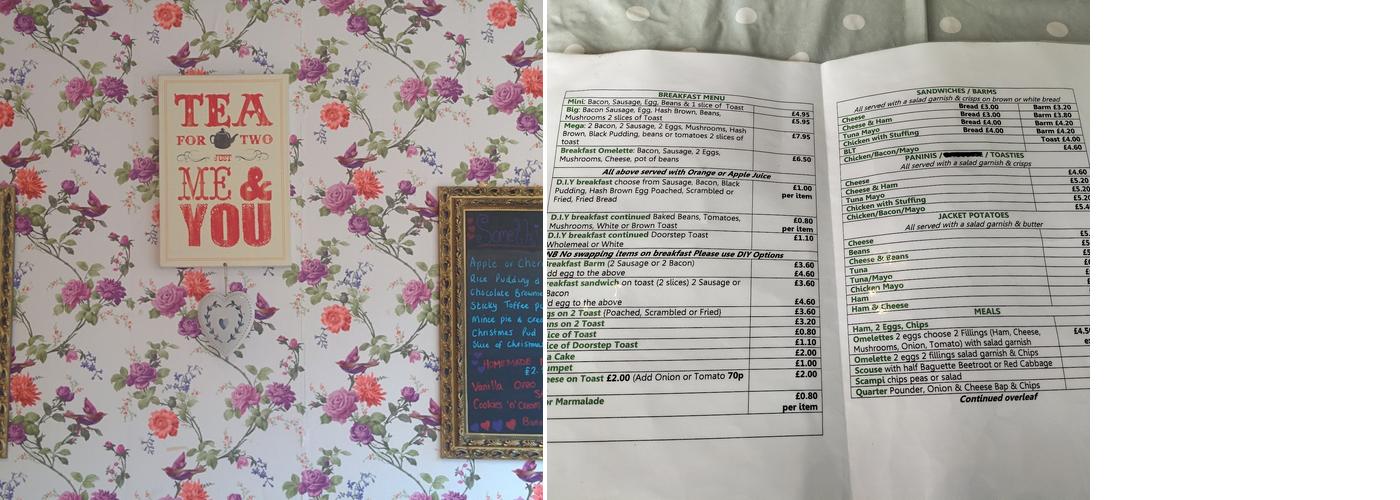 TEA
FOR TWO
JUST
ME &
YOU
Apple or Cher
Rice Pudding
Chocolate Brownie
Sticky Toffee
Mince pie & cre
Christmas Pud
Slice of Christmas
HOMEMADE
£2.
Vanilla Oreo
Cookies 'n' Cream
BREAKFAST MENU
Mini: Bacon, Sausage, Egg, Beans & 1 slice of Toast £4.95
Big: Bacon Sausage, Egg, Hash Brown, Beans,
Mushrooms 2 slices of Toast £5.95
Mega: 2 Bacon, 2 Sausage, 2 Eggs, Mushrooms, Hash
Brown, Black Pudding, beans or tomatoes 2 slices of
toast £7.95
Breakfast Omelette: Bacon, Sausage, 2 Eggs,
Mushrooms, Cheese, pot of beans £6.50
All above served with Orange or Apple Juice
D.I.Y breakfast choose from Sausage, Bacon, Black £1.00
Pudding, Hash Brown Egg Poached, Scrambled or per item
Fried, Fried Bread
D.I.Y breakfast continued Baked Beans, Tomatoes, £0.80
Mushrooms, White or Brown Toast per item
D.I.Y breakfast continued Doorstep Toast £1.10
Wholemeal or White
NB No swapping items on breakfast Please use DIY Options
Breakfast Barm (2 Sausage or 2 Bacon) £3.60
dd egg to the above £4.60
eakfast sandwich on toast (2 slices) 2 Sausage or £3.60
Bacon
d egg to the above £4.60
gs on 2 Toast (Poached, Scrambled or Fried) £3.60
ans on 2 Toast £3.20
ice of Toast £0.80
ice of Doorstep Toast £1.10
a Cake £2.00
umpet £1.00
eese on Toast £2.00 (Add Onion or Tomato 70p £2.00
or Marmalade £0.80
per item
SANDWICHES / BARMS
All served with a salad garnish & crisps on brown or white bread
Cheese Bread £3.00 Barm £3.20
Cheese & Ham Bread £3.00 Barm £3.80
Tuna Mayo Bread £4.00 Barm £4.20
Chicken with Stuffing Bread £4.00 Barm £4.20
BLT Toast £4.00
Chicken/Bacon/Mayo £4.60
PANINIS / / TOASTIES
All served with a salad garnish & crisps
Cheese £4.60
Cheese & Ham £5.20
Tuna Mayo £5.20
Chicken with Stuffing £5.20
Chicken/Bacon/Mayo £5.4
JACKET POTATOES
All served with a salad garnish & butter
Cheese £5.
Beans £5
Cheese & Beans
Tuna
Tuna/Mayo
Chicken Mayo
Ham
Ham & Cheese
MEALS
Ham, 2 Eggs, Chips
Omelettes 2 eggs choose 2 Fillings (Ham, Cheese, £4.50
Mushrooms, Onion, Tomato) with salad garnish
Omelette 2 eggs 2 fillings salad garnish & Chips
Scouse with half Baguette Beetroot or Red Cabbage
Scampi chips peas or salad
Quarter Pounder, Onion & Cheese Bap & Chips
Continued overleaf